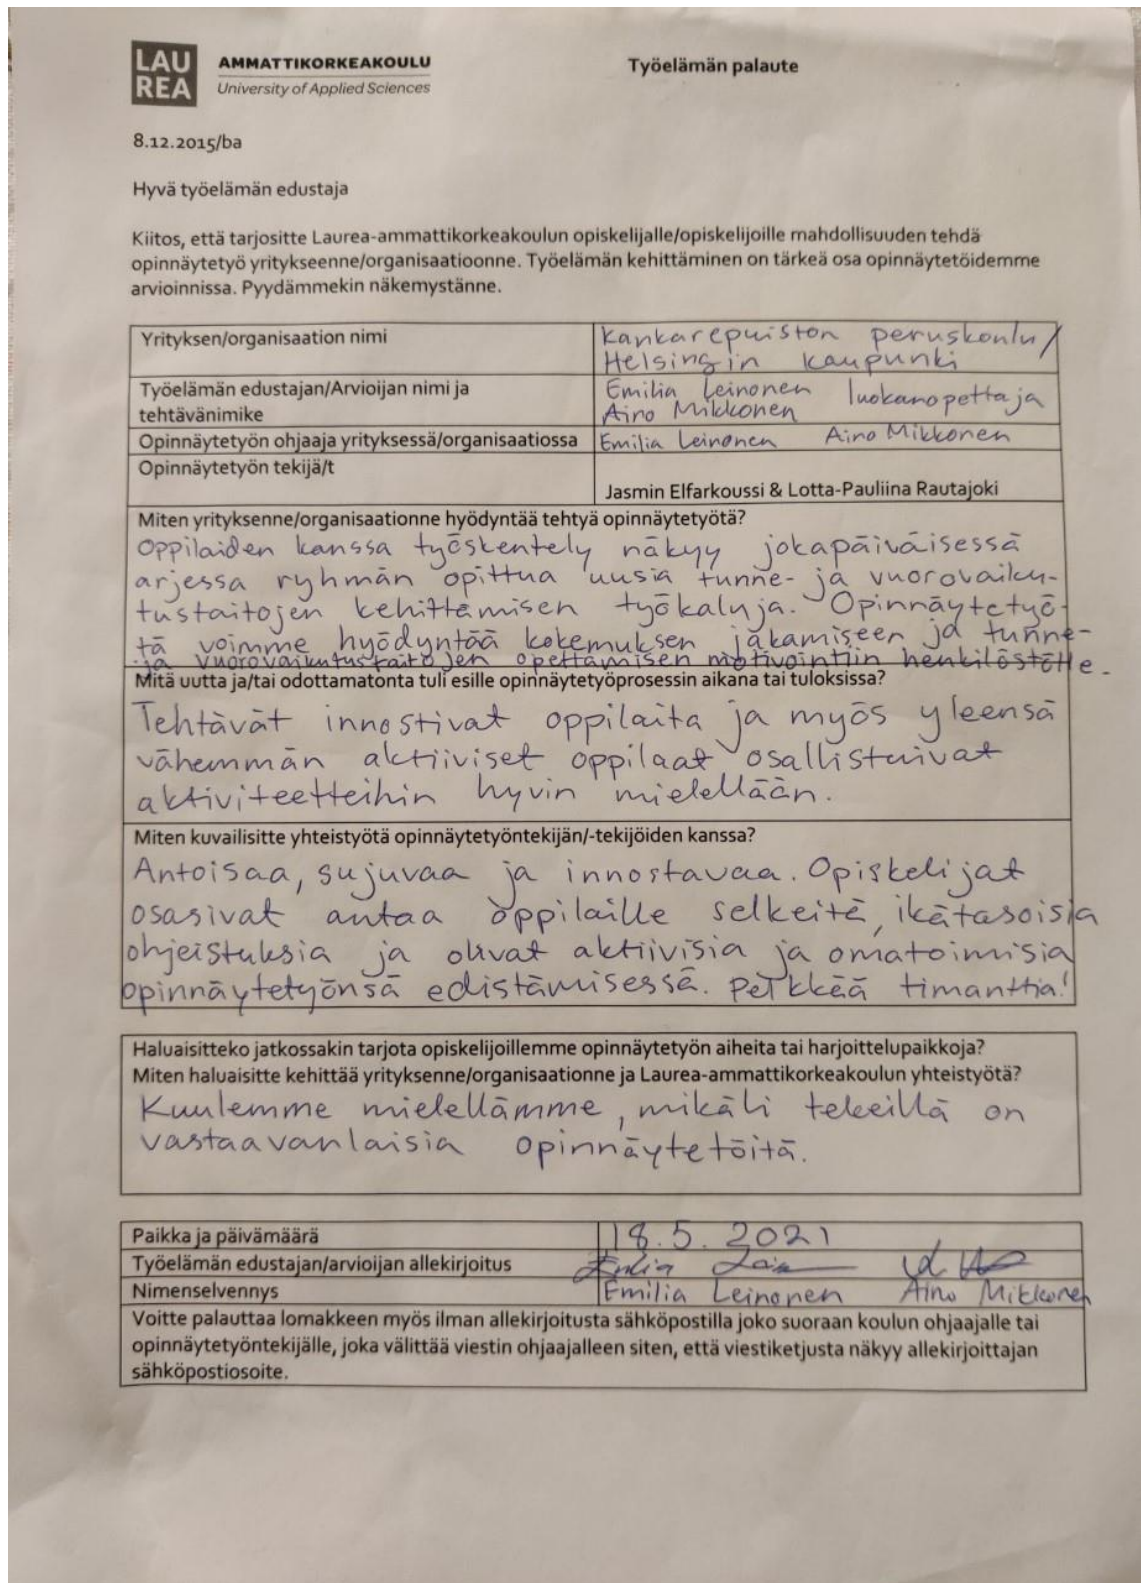 LAU
REA
AMMATTIKORKEAKOULU
University of Applied Sciences
Työelämän palaute
8.12.2015/ba
Hyvä työelämän edustaja
Kiitos, että tarjositte Laurea-ammattikorkeakoulun opiskelijalle/opiskelijoille mahdollisuuden tehdä
opinnäytetyö yritykseenne/organisaatioonne. Työelämän kehittäminen on tärkeä osa opinnäytetöidemme
arvioinnissa. Pyydämmekin näkemystänne.
Yrityksen/organisaation nimi
Kankarepuiston peruskoulu/
Helsingin kaupunki
Työelämän edustajan/Arvioijan nimi ja
tehtävänimike
Emilia Leinonen luokanopettaja
Aino Mikkonen
Opinnäytetyön ohjaaja yrityksessä/organisaatiossa
Emilia Leinonen Aino Mikkonen
Opinnäytetyön tekijä/t
Jasmin Elfarkoussi & Lotta-Pauliina Rautajoki
Miten yrityksenne/organisaationne hyödyntää tehtyä opinnäytetyötä?
Oppilaiden kanssa työskentely näkyy jokapäiväisessä
arjessa ryhmän opittua uusia tunne- ja vuorovaiku-
tustaitojen kehittämisen työkaluja. Opinnäytetyö-
tä voimme hyödyntää kokemuksen jakamiseen ja tunne-
ja vuorovaikutustaitojen opettamisen motivointiin henkilöstölle.
Mitä uutta ja/tai odottamatonta tuli esille opinnäytetyöprosessin aikana tai tuloksissa?
Tehtävät innostivat oppilaita ja myös yleensä
vähemmän aktiiviset oppilaat osallistuivat
aktiviteetteihin hyvin mielellään.
Miten kuvailisitte yhteistyötä opinnäytetyöntekijän/-tekijöiden kanssa?
Antoisaa, sujuvaa ja innostavaa. Opiskelijat
osasivat antaa oppilaille selkeitä, ikätasoisia
ohjeistuksia ja olivat aktiivisia ja omatoimisia
opinnäytetyönsä edistämisessä. Pelkkää timanttia!
Haluaisitteko jatkossakin tarjota opiskelijoillemme opinnäytetyön aiheita tai harjoittelupaikkoja?
Miten haluaisitte kehittää yrityksenne/organisaationne ja Laurea-ammattikorkeakoulun yhteistyötä?
Kuulemme mielellämme, mikäli tekeillä on
vastaavanlaisia opinnäytetöitä.
Paikka ja päivämäärä
18.5.2021
Työelämän edustajan/arvioijan allekirjoitus
Nimenselvennys
Emilia Leinonen Aino Mikkonen
Voitte palauttaa lomakkeen myös ilman allekirjoitusta sähköpostilla joko suoraan koulun ohjaajalle tai
opinnäytetyöntekijälle, joka välittää viestin ohjaajalleen siten, että viestiketjusta näkyy allekirjoittajan
sähköpostiosoite.